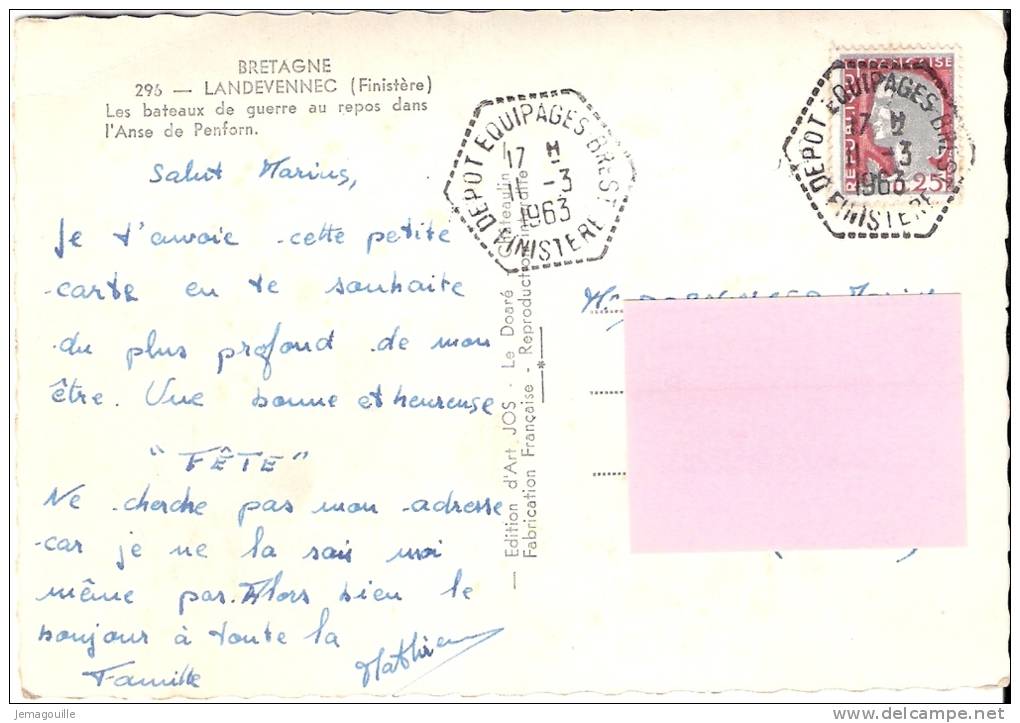 BRETAGNE
296 — LANDEVENNEC (Finistère)
Les bateaux de guerre au repos dans
l'Anse de Penforn.
Salut Marius,
Je t'avoie cette petite
carte en te souhaite
du plus profond de mon
être. Une bonne et heureuse
"FÊTE"
Ne cherche pas mon adresse
car je ne la sais moi
même pas. Alors bien le
bonjour à toute la
Famille
Mathieu
— Edition d'Art JOS - Le Doaré - Châteaulin
Fabrication Française - Reproduction interdite
DEPOT EQUIPAGES BREST
17 H
11 -3
1963
FINISTERE
REPUBLIQUE FRANÇAISE
0,25
DEPOT EQUIPAGES BREST
17 H
11 -3
1963
FINISTERE
Marius
Jemagouille
www.delcampe.net